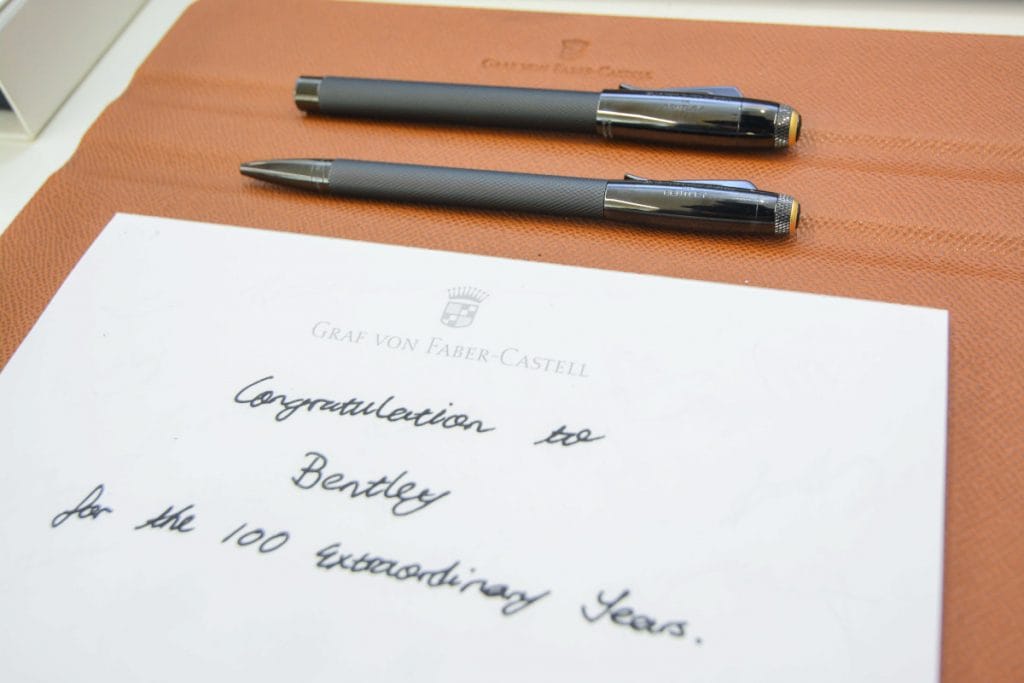 GRAF VON FABER-CASTELL
BENTLEY
GRAF VON FABER-CASTELL
Congratulation to
Bentley
for the 100 Extraordinary Years.